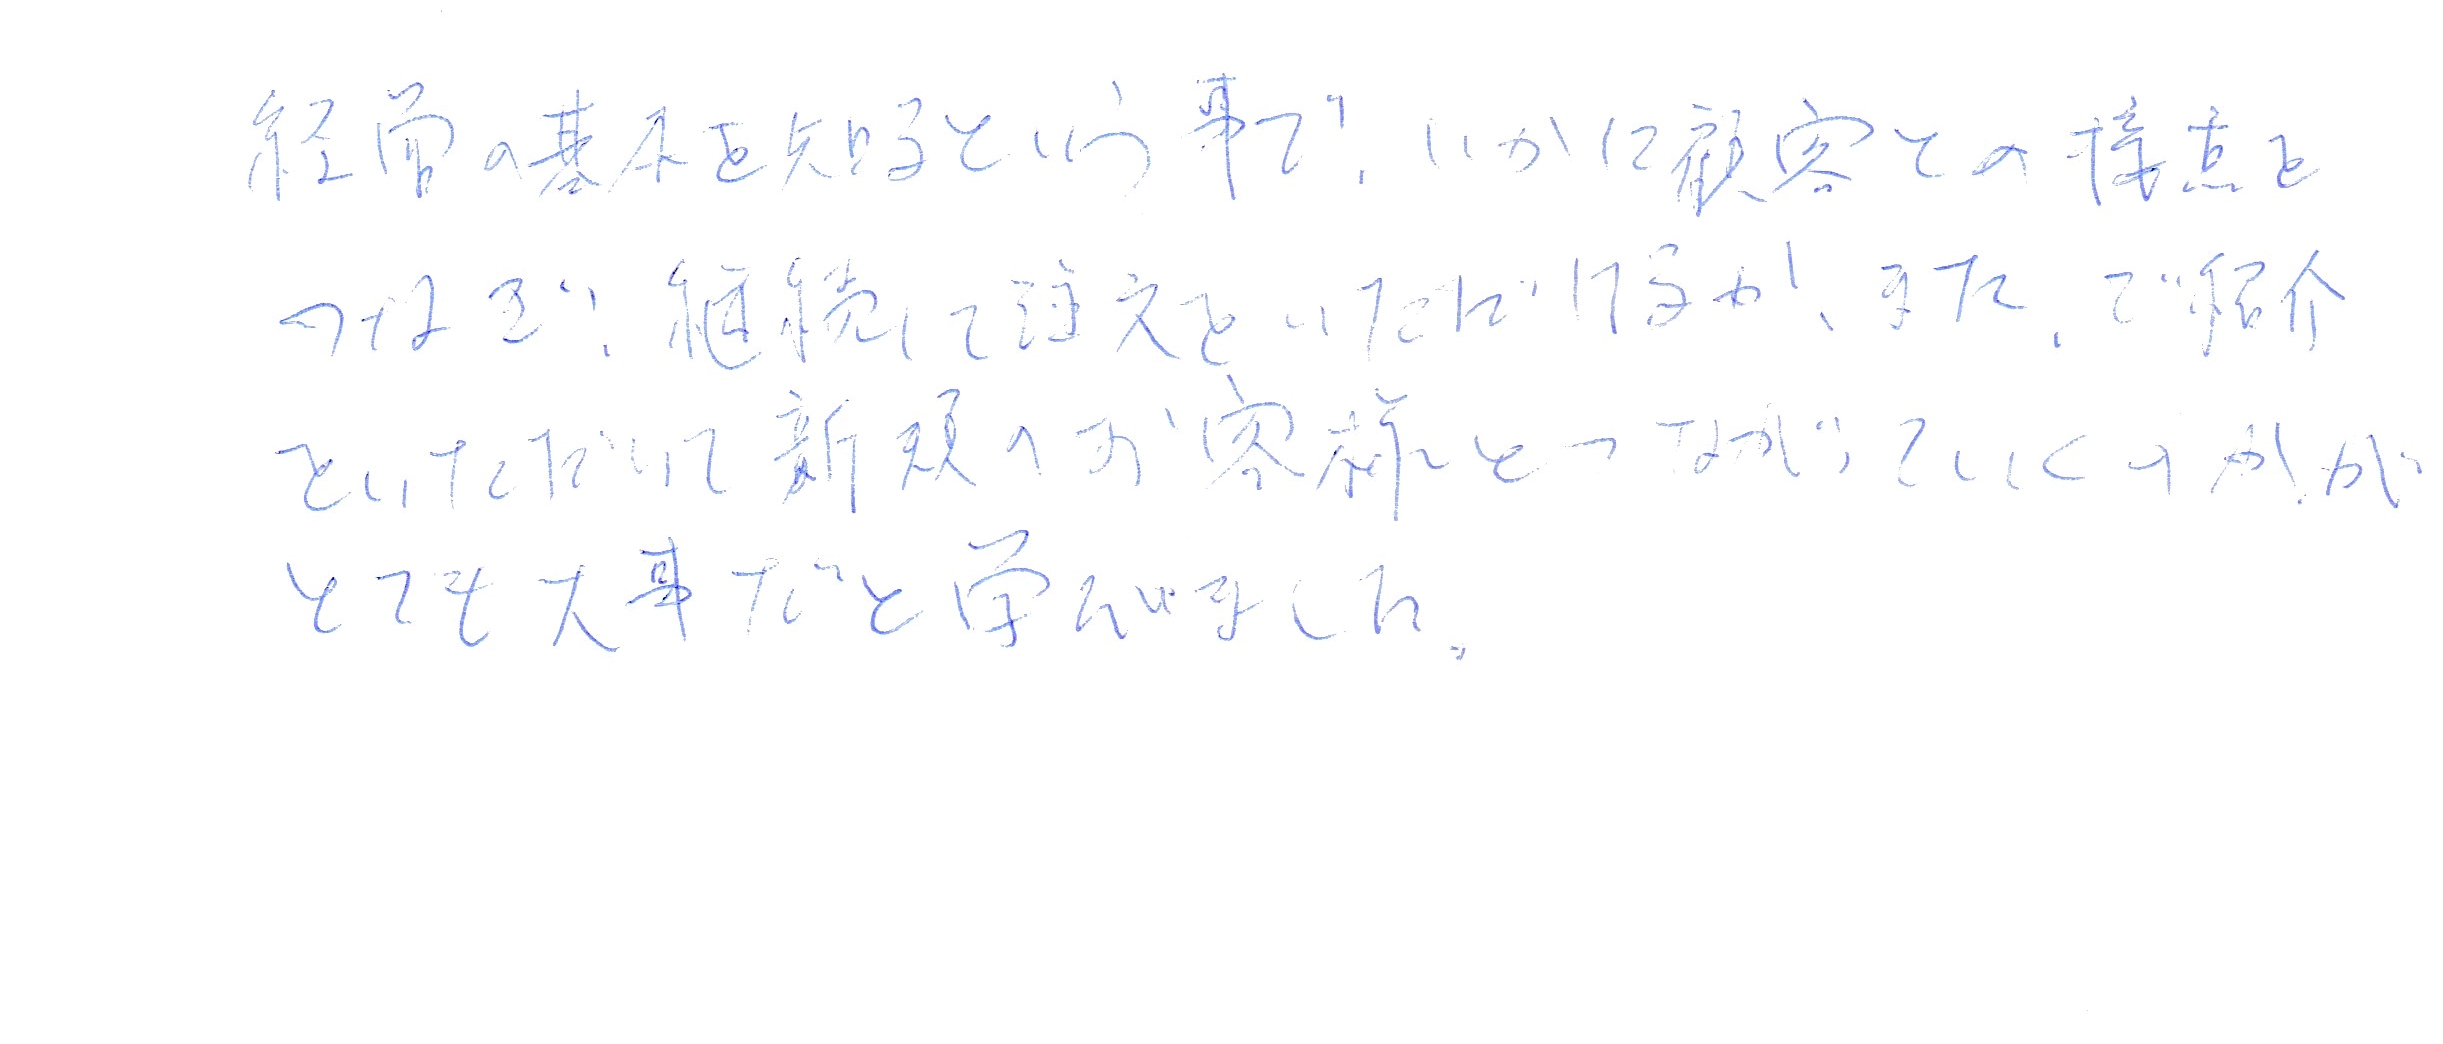 経営の基本を知るという事で、いかに顧客との接点を
つなぎ、継続して注文をいただけるか、また、ご紹介
をいただいて新規のお客様とつながっていくのか、が
とても大事だと学びました。